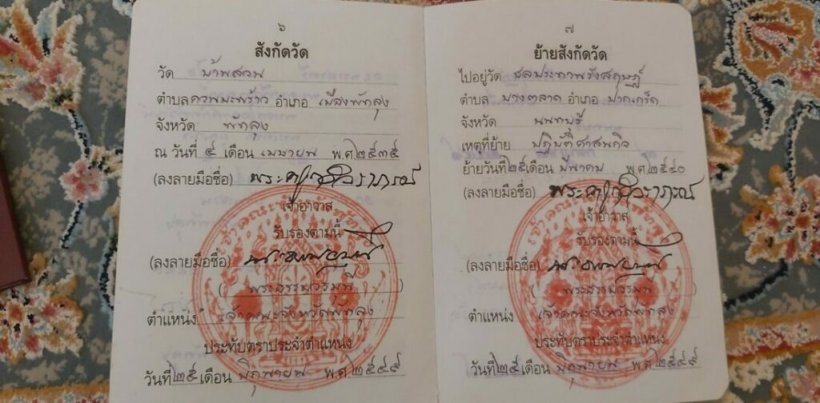 ๖
สังกัดวัด
วัด บ้านสวน
ตำบล ควนมะพร้าว อำเภอ เมืองพัทลุง
จังหวัด พัทลุง
ณ วันที่ ๔ เดือน เมษายน พ.ศ. ๒๕๓๕
(ลงลายมือชื่อ) พระครู
เจ้าอาวาส
รับรองตามนี้
(ลงลายมือชื่อ)
ตำแหน่ง เจ้าคณะจังหวัดพัทลุง
ประทับตราประจำตำแหน่ง
วันที่ ๒๕ เดือน มิถุนายน พ.ศ. ๒๕๔๙
๗
ย้ายสังกัดวัด
ไปอยู่วัด ชลประทานรังสฤษฎ์
ตำบล บางตลาด อำเภอ ปากเกร็ด
จังหวัด นนทบุรี
เหตุที่ย้าย ปฏิบัติศาสนกิจ
ย้ายวันที่ ๒๕ เดือน มีนาคม พ.ศ. ๒๕๔๐
(ลงลายมือชื่อ) พระครู
เจ้าอาวาส
รับรองตามนี้
(ลงลายมือชื่อ)
ตำแหน่ง เจ้าคณะจังหวัดพัทลุง
ประทับตราประจำตำแหน่ง
วันที่ ๒๕ เดือน มิถุนายน พ.ศ. ๒๕๔๙